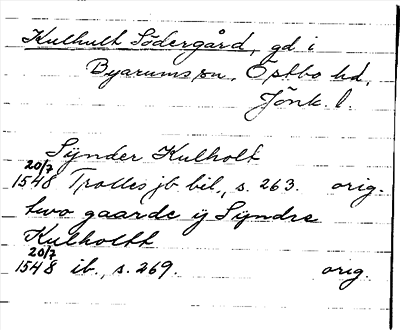 Kulhult Södergård, gd i
Byarums sn, Östbo hd,
Jönk. l.
Synder Kulholt
20/7
1548 Trolles jb bil., s. 263. orig.
two gaarde y Syndre
Kulholtt
20/7
1548 ib., s. 269. orig.